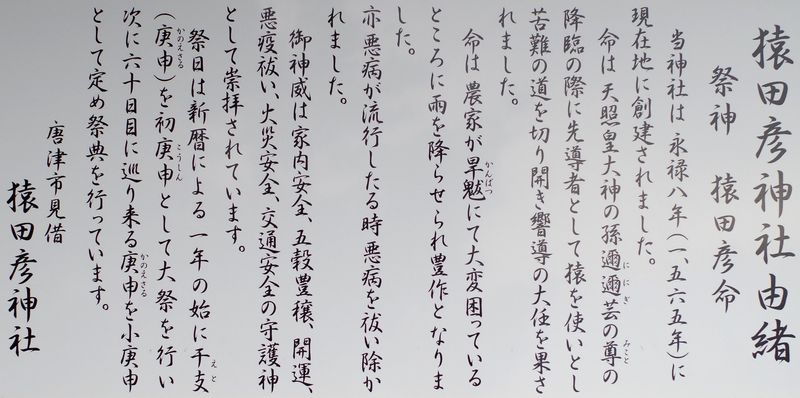 猿田彦神社由緒
祭神　猿田彦命
当神社は永禄八年（一、五六五年）に
現在地に創建されました。
命は天照皇大神の孫邇邇芸の尊の
降臨の際に先導者として猿を使いとし
苦難の道を切り開き響導の大任を果さ
れました。
命は農家が旱魃にて大変困っている
ところに雨を降らせられ豊作となりま
した。
亦悪病が流行したる時悪病を祓い除か
れました。
御神威は家内安全、五穀豊穣、開運、
悪疫祓い、火災安全、交通安全の守護神
として崇拝されています。
祭日は新暦による一年の始に干支
（庚申）を初庚申として大祭を行い
次に六十日目に巡り来る庚申を小庚申
として定め祭典を行っています。
唐津市見借
猿田彦神社